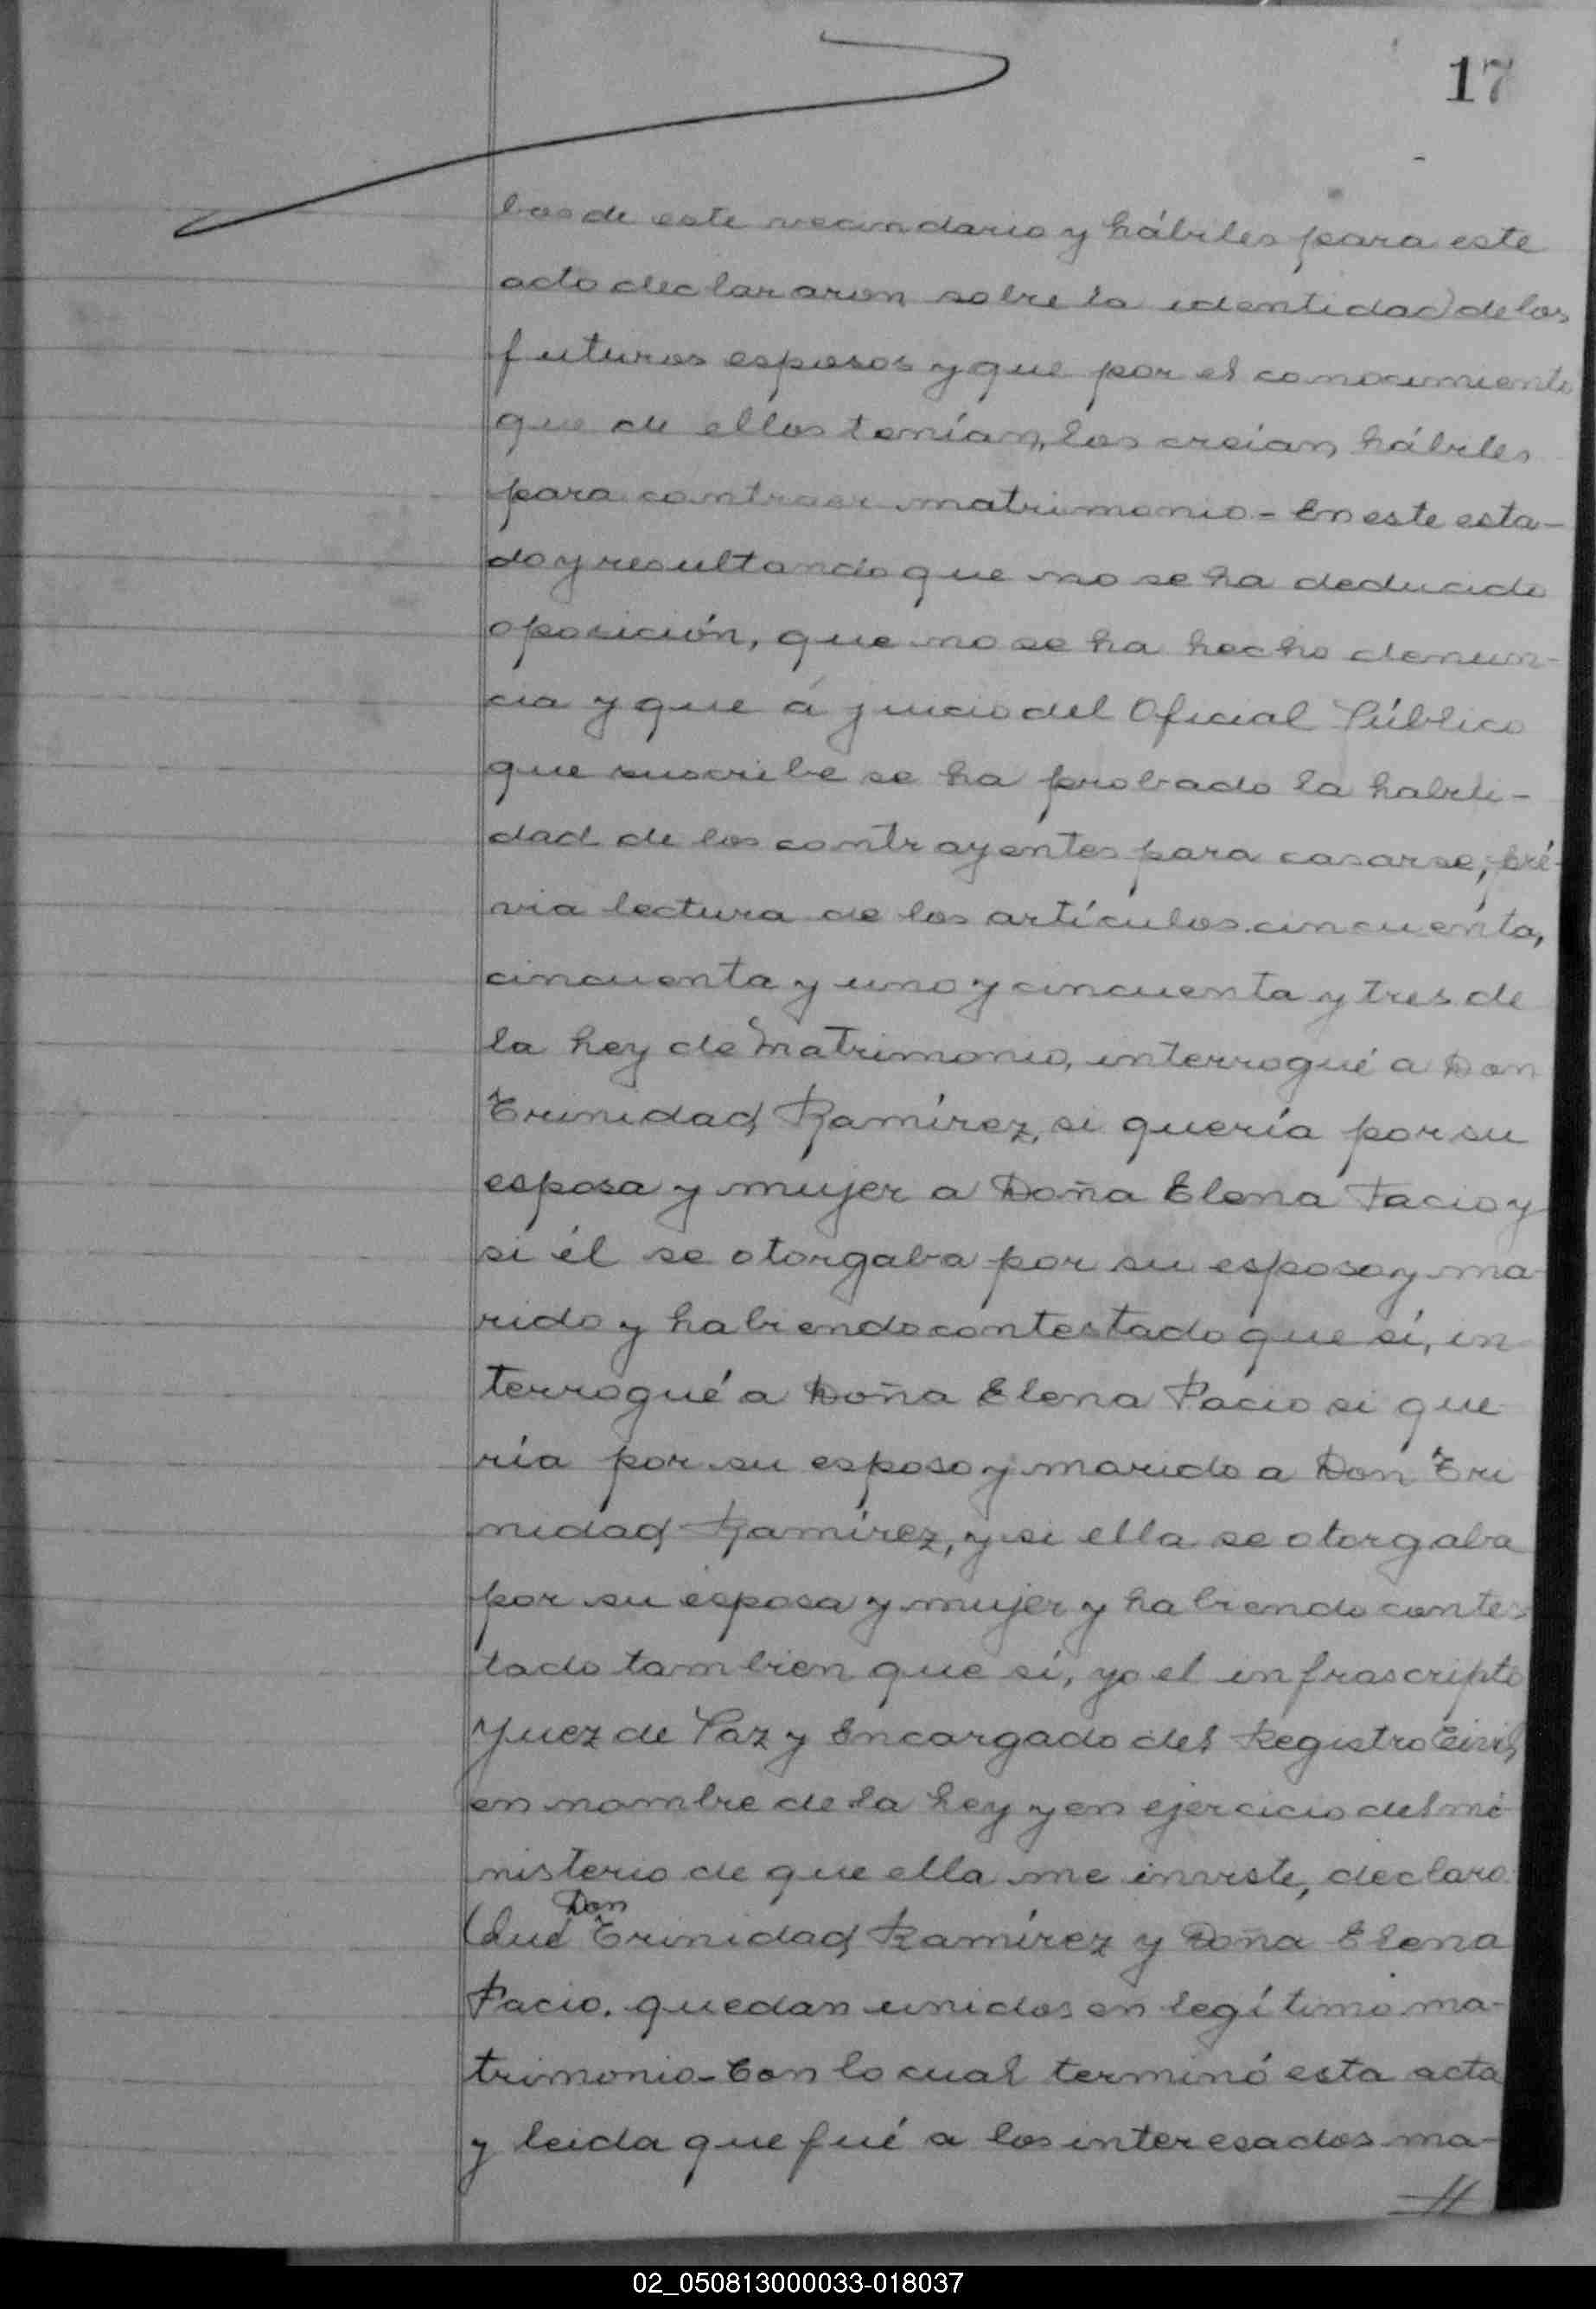 17
bos de este vecindario y hábiles para este
acto declararon sobre la identidad de los
futuros esposos y que por el conocimiento
que de ellos tenían, los creían hábiles
para contraer matrimonio - En este esta-
do y resultando que no se ha deducido
oposición, que no se ha hecho denun-
cia y que á juicio del Oficial Público
que suscribe se ha probado la habili-
dad de los contrayentes para casarse, pré-
via lectura de los artículos cincuenta,
cincuenta y uno y cincuenta y tres de
la Ley de Matrimonio, interrogué a Don
Trinidad Ramírez, si quería por su
esposa y mujer a Doña Elena Facio y
si él se otorgaba por su esposo y ma
rido y habiendo contestado que sí, in
terrogué a Doña Elena Facio si que
ría por su esposo y marido a Don Tri
nidad Ramírez, y si ella se otorgaba
por su esposa y mujer y habiendo contes
tado tambien que sí, yo el infrascripto
Juez de Paz y Encargado del Registro Civil,
en nombre de la Ley y en ejercicio del mi-
nisterio de que ella me inviste, declaro
Don
Que Trinidad Ramírez y Doña Elena
Facio. quedan unidos en legítimo ma-
trimonio - Con lo cual terminó esta acta
y leida que fué a los interesados ma-
//
02_050813000033-018037